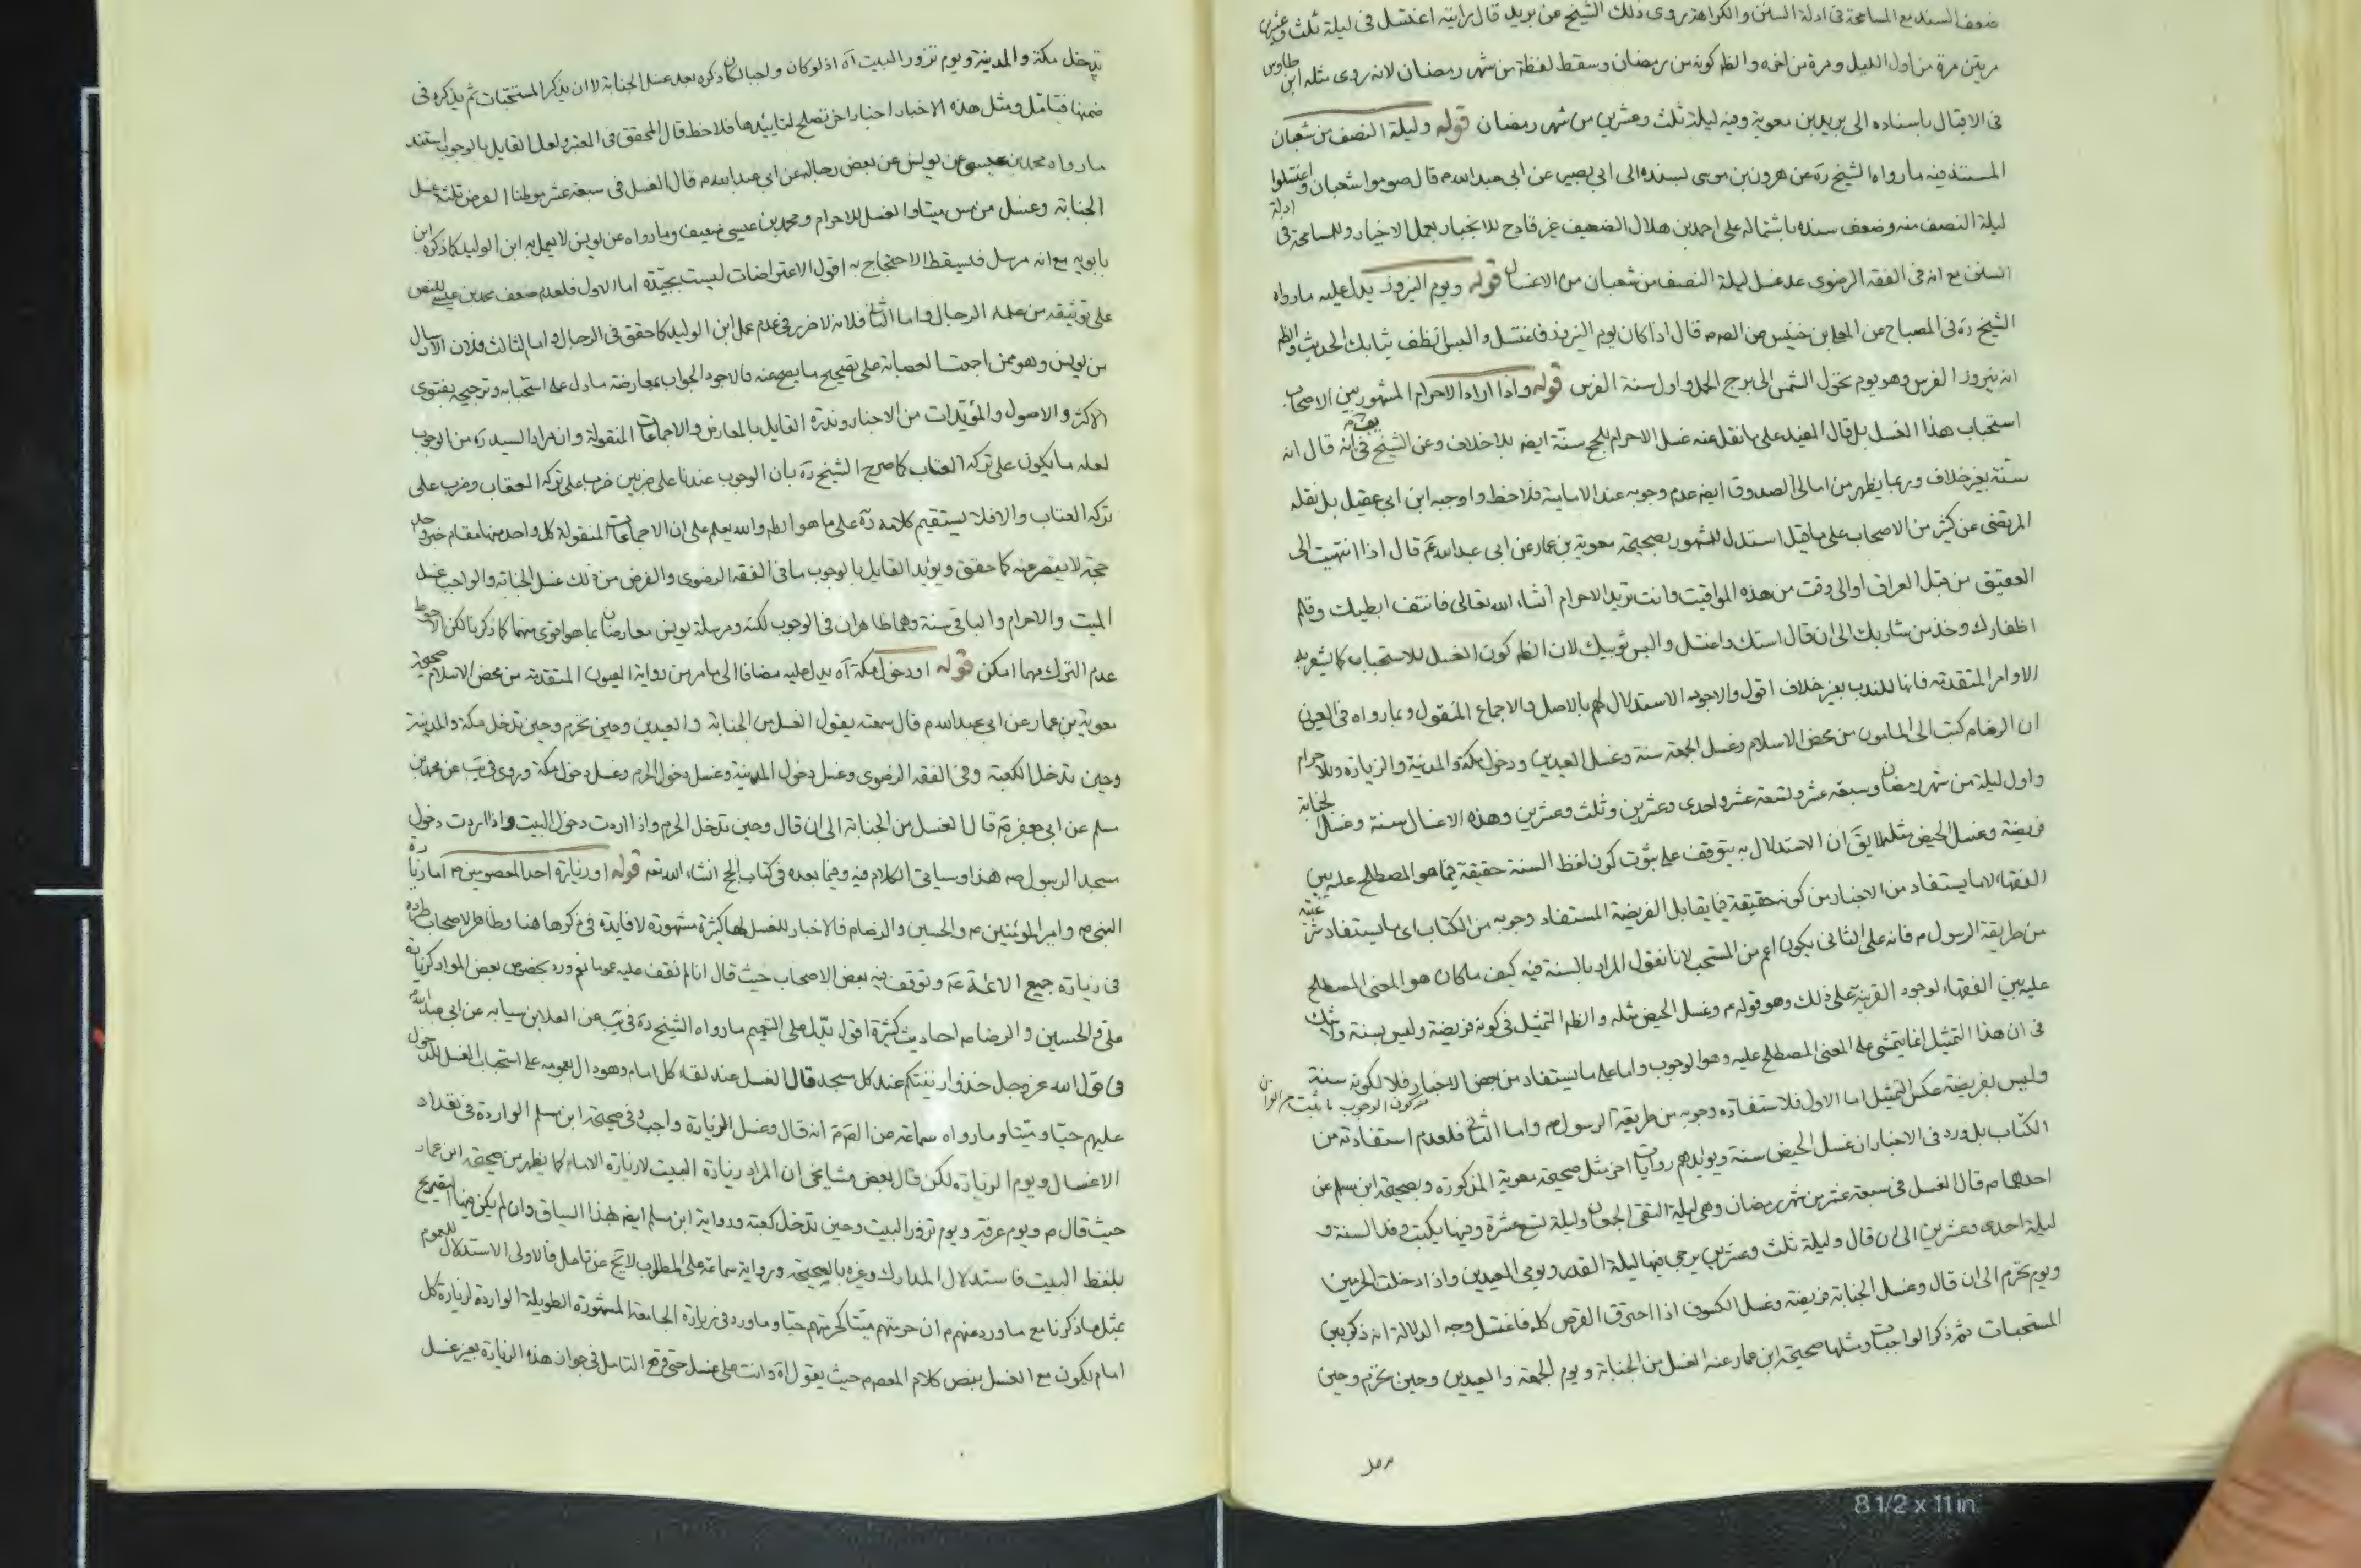 ضعف السند مع المسامحة فى ادلة السنن والكراهة روى ذلك الشيخ عن بريد قال رايته اغتسل فى ليلة ثلث وعشرين
مرتين مرة من اول الليل ومرة من اخره والظ كونه من رمضان وسقط لفظة من شهر رمضان لانه روى مثله ابن طاوس
فى الاقبال باسناده الى بريد بن معوية وفيه ليلة ثلث وعشرين من شهر رمضان قوله وليلة النصف من شعبان
المستند فيه ما رواه الشيخ ره عن هرون بن موسى بسنده الى ابى بصير عن ابى عبد الله م قال صوموا شعبان واغتسلوا
ليلة النصف منه وضعف سنده باشتماله على احمد بن هلال الضعيف غير قادح للانجبار بعمل الاخيار وللمسامحة فى ادلة
السنن مع انه فى الفقه الرضوى عد غسل ليلة النصف من شعبان من الاغسال قوله ويوم النيروز يدل عليه ما رواه
الشيخ ره فى المصباح عن المعلى بن خنيس عن الصم قال اذا كان يوم النيروز فاغتسل والبس انظف ثيابك الحديث والظ
انه نيروز الفرس وهو يوم تحول الشمس الى برج الحمل واول سنة الفرس قوله واذا اراد الاحرام المشهور بين الاصحاب
استحباب هذا الغسل بل قال المفيد على ما نقل عنه غسل الاحرام للحج سنة ايضا بلا خلاف وعن الشيخ فى انه قال انه
سنة بغير خلاف وربما يظهر من امالى الصدوق ايضا عدم وجوبه عند الامامية فلاحظ واوجبه ابن ابى عقيل بل نقله
المرتضى عن كثير من الاصحاب على ما قيل استدل للمشهور بصحيحة معوية بن عمار عن ابى عبد الله عم قال اذا انتهيت الى
العقيق من قبل العراق او الى وقت من هذه المواقيت وانت تريد الاحرام انشاء الله تعالى فانتف ابطيك وقلم
اظفارك وخذ من شاربك الى ان قال استك واغتسل والبس ثوبيك لان الظ كون الغسل للاستحباب كما يشعر به
الاوامر المتقدمة فانها للندب بغير خلاف اقول والاجود الاستدلال لهم بالاصل والاجماع المنقول وبما رواه فى العيون
ان الرضا م كتب الى المامون من محض الاسلام وغسل الجمعة سنة وغسل العيدين ودخول مكة والمدينة والزيارة وللاحرام
واول ليلة من شهر رمضان وسبعة عشر وتسعة عشر واحدى وعشرين وثلث وعشرين وهذه الاغسال سنة وغسل الجنابة
فريضة وغسل الحيض مثله لا يق ان الاستدلال به يتوقف على ثبوت كون لفظ السنة حقيقة فيما هو المصطلح عليه بين
الفقهاء لا ما يستفاد من الاخبار من كونه حقيقة فيما يقابل الفريضة المستفاد وجوبه من الكتاب اى ما يستفاد شرعيته
من طريقة الرسول م فانه على الثانى يكون اعم من المستحب لانا نقول المراد بالسنة فيه كيف ما كان هو المعنى المصطلح
عليه بين الفقهاء لوجود القرينة على ذلك وهو قوله م وغسل الحيض مثله والظ التمثيل فى كونه فريضة وليس بسنة ولا شك
فى ان هذا التمثيل انما يتمشى على المعنى المصطلح عليه وهو الوجوب واما على ما يستفاد من بعض الاخبار فلا لكونه سنة
وليس بفريضة عكس التمثيل اما الاول فلاستفادة وجوبه من طريقة الرسول م واما الثانى فلعدم استفادته من
الكتاب بل ورد فى الاخبار ان غسل الحيض سنة ويؤيدهم روايات اخر مثل صحيحة معوية المذكورة وبصحيحة ابن مسلم عن
احدهما م قال الغسل فى سبعة عشر من شهر رمضان وهى ليلة التقى الجمعان وليلة تسع عشرة وفيها يكتب وفد السنة و
ليلة احدى وعشرين الى ان قال وليلة ثلث وعشرين يرجى فيها ليلة القدر ويومى العيدين واذا دخلت الحرمين
ويوم تحرم الى ان قال وغسل الجنابة فريضة وغسل الكسوف اذا احترق القرص كله فاغتسل وجه الدلالة انه ذكر بين
المستحبات ثم ذكر الواجبات ومثلها صحيحة ابن عمار عنه الغسل من الجنابة ويوم الجمعة والعيدين وحين تحرم وحين
تدخل مكة والمدينة ويوم تزور البيت آه اذ لو كان واجبا لكان ذكره بعد غسل الجنابة لا ان يذكر المستحبات ثم يذكره فى
ضمنها فتامل ومثل هذه الاخبار اخبار اخر تصلح لتاييدها فلاحظ قال المحقق فى المعتبر ولعل القايل بالوجوب استند
ما رواه محمد بن عيسى عن يونس عن بعض رجاله عن ابى عبد الله م قال الغسل فى سبعة عشر موطنا الفرض ثلثة غسل
الجنابة وغسل من مس ميتا والغسل للاحرام ومحمد بن عيسى ضعيف وما رواه عن يونس لا يعمل به ابن الوليد كما ذكره ابن
بابويه مع انه مرسل فيسقط الاحتجاج به اقول الاعتراضات ليست بجيدة اما الاول فلعدم ضعف محمد بن عيسى للنص
على توثيقه من علماء الرجال واما الثانى فلانه لا ضرر فى عدم عمل ابن الوليد كما حقق فى الرجال واما الثالث فلان الارسال
من يونس وهو ممن اجمعت العصابة على تصحيح ما يصح عنه فالاجود الجواب بمعارضة ما دل على استحبابه وترجيحه بفتوى
الاكثر والاصول والمؤيدات من الاخبار وندرة القايل بالمعارض والاجماعات المنقولة وان مراد السيد ره من الوجوب
لعله ما يكون على تركه العتاب كما صرح الشيخ ره بان الوجوب عندنا على ضربين ضرب على تركه العقاب وضرب على
تركه العتاب والا فلا يستقيم كلامه ره على ما هو الظ والله يعلم على ان الاجماعات المنقولة كل واحد منها مقام خبر واحد
حجة لا يقصر عنه كما حقق ويؤيد القايل بالوجوب ما فى الفقه الرضوى والفرض من ذلك غسل الجنابة والواجب غسل
الميت والاحرام والباقى سنة وهما ظاهران فى الوجوب لكنه ومرسلة يونس معارضان بما هو اقوى منهما كما ذكرنا لكن الاحوط
عدم الترك مهما امكن قوله او دخول مكة آه يدل عليه مضافا الى ما مر من رواية العيون المتقدمة من محض الاسلام صحيحة
معوية بن عمار عن ابى عبد الله م قال سمعته يقول الغسل من الجنابة والعيدين وحين تحرم وحين تدخل مكة والمدينة
وحين تدخل الكعبة وفى الفقه الرضوى وغسل دخول المدينة وغسل دخول الحرم وغسل دخول مكة وروى فى يب عن محمد بن
مسلم عن ابى جعفر م قال الغسل من الجنابة الى ان قال وحين تدخل الحرم واذا اردت دخول البيت واذا اردت دخول
مسجد الرسول ص هذا وسياتى الكلام فيه وفيما بعده فى كتاب الحج انشاء الله تعه قوله او زيارة احد المعصومين م اما زيارة
النبى ص وامير المؤمنين م والحسين والرضا م فالاخبار للغسل لها كثيرة مشهورة لا فايدة فى ذكرها هنا وظاهر الاصحاب اطراده
فى زيارة جميع الائمة عم وتوقف فيه بعض الاصحاب حيث قال انا لم نقف عليه عموما نعم ورد بخصوص بعض المواد كزيارة
على والحسين والرضا م احاديث كثيرة اقول يدل على التعميم ما رواه الشيخ ره فى يب عن العلا بن سيابه عن ابى عبد الله
فى قول الله عز وجل خذوا زينتكم عند كل مسجد قال الغسل عند لقاء كل امام وهو دال بعمومه على استحباب الغسل للدخول
عليهم حيا وميتا وما رواه سماعة عن الصم انه قال وغسل الزيارة واجب وفى صحيحة ابن مسلم الواردة فى تعداد
الاغسال ويوم الزيارة لكن قال بعض مشايخى ان المراد زيارة البيت لا زيارة الامام كما يظهر من صحيحة ابن عمار
حيث قال م ويوم عرفة ويوم تزور البيت وحين تدخل كعبة ورواية ابن مسلم ايضا لهذا السياق وان لم يكن فيها التصريح
بلفظ البيت فاستدلال المدارك وغيره بالصحيحة ورواية سماعة على المطلوب لا يخ عن تامل فالاولى الاستدلال للعموم
بمثل ما ذكرنا مع ما ورد منهم م ان حرمتهم ميتا كحرمتهم حيا وما ورد فى زيارة الجامعة المشهورة الطويلة الواردة لزيارة كل
امام يكون مع الغسل بنص كلام المعصم حيث يقول آه وانت على غسل حتى وقع التامل فى جواز هذه الزيارة بغير غسل
8 1/2 x 11 in.